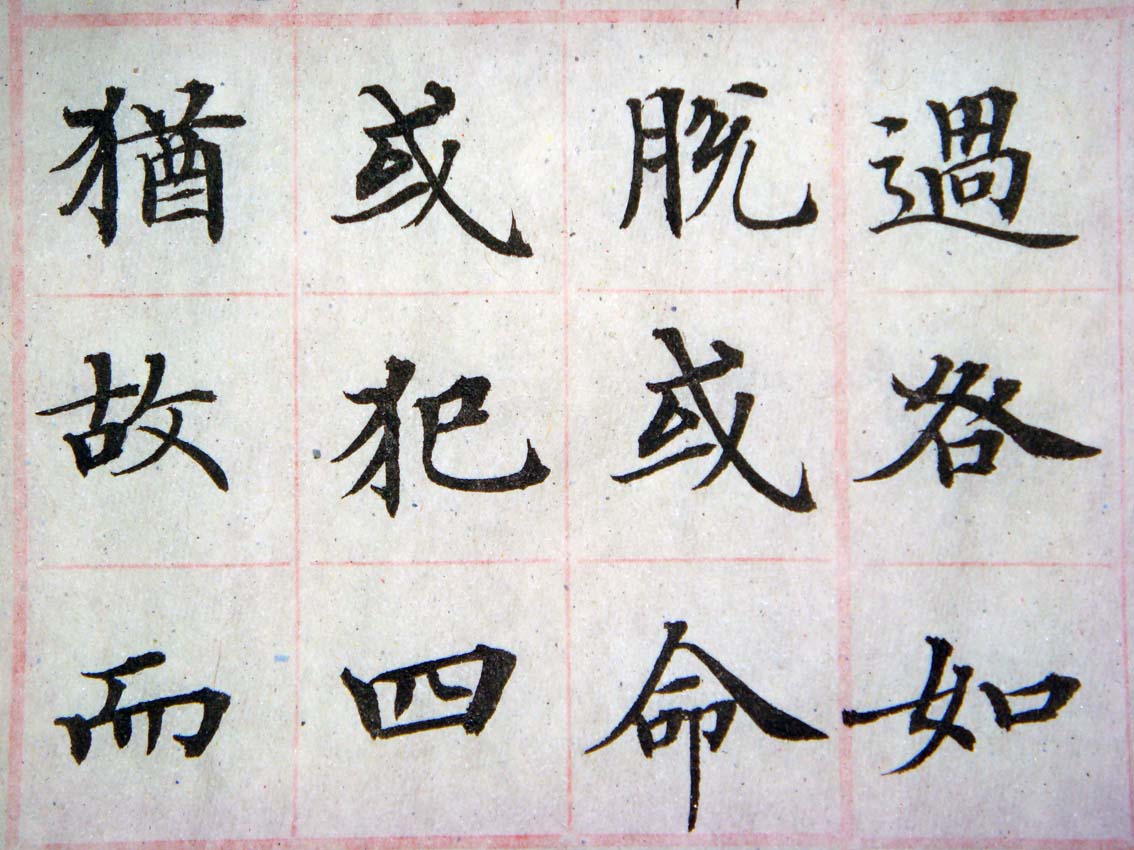 過咎如
脱或命
或犯四
猶故而